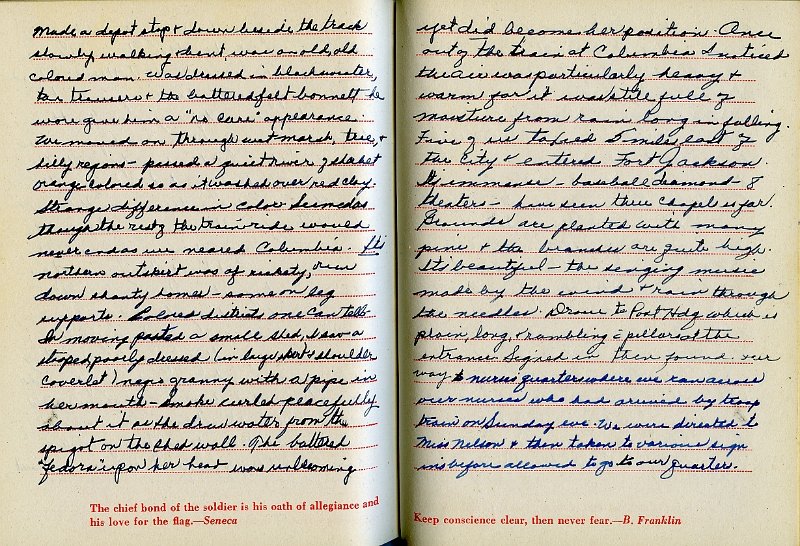 made a depot stop & down beside the track
slowly walking & bent, was an old, old
colored man. Was dressed in black sweater,
trousers & the battered felt bonnet he
wore gave him a "no care" appearance.
We moved on through wet marsh, trees, &
hilly regions – passed a quiet river of sherbet
orange colored so as it washed over red clay.
Strange difference in color. Seemed as
though the rest of the train ride would
never end as we neared Columbia. It's
northern outskirt was of rickety, run
down shanty homes – some on leg
supports. Colored districts one can tell.
In moving pasted a small shed, I saw a
stooped, poorly dressed (in huge skirt & shoulder
coverlet) negro granny with a pipe in
her mouth – smoke curled peacefully
about it as she drew water from the
spigot on the shed wall. The battered
"fedora" upon her head was unbecoming
The chief bond of the soldier is his oath of allegiance and
his love for the flag.—Seneca
yet did become her position. Once
out of the train at Columbia I noticed
the air was particularly heavy &
warm for it was still full of
moisture from rain long in falling.
Five of us taxied 5 miles east of
the city & entered Fort Jackson.
It's immense – baseball diamond – 8
theaters – have seen three chapels so far.
Grounds are planted with many
pine & the branches are quite high.
It's beautiful – the singing music
made by the wind & rain through
the needles. Drove to Post Hdq which is
plain, long, & rambling c pillars at the
entrance. Signed in then found our
way to nurses quarters where we ran across
our nurses who had arrived by troop
train on Sunday eve. We were directed to
Miss Nelson & then taken to various sign
ins before allowed to go to our quarters.
Keep conscience clear, then never fear.—B. Franklin